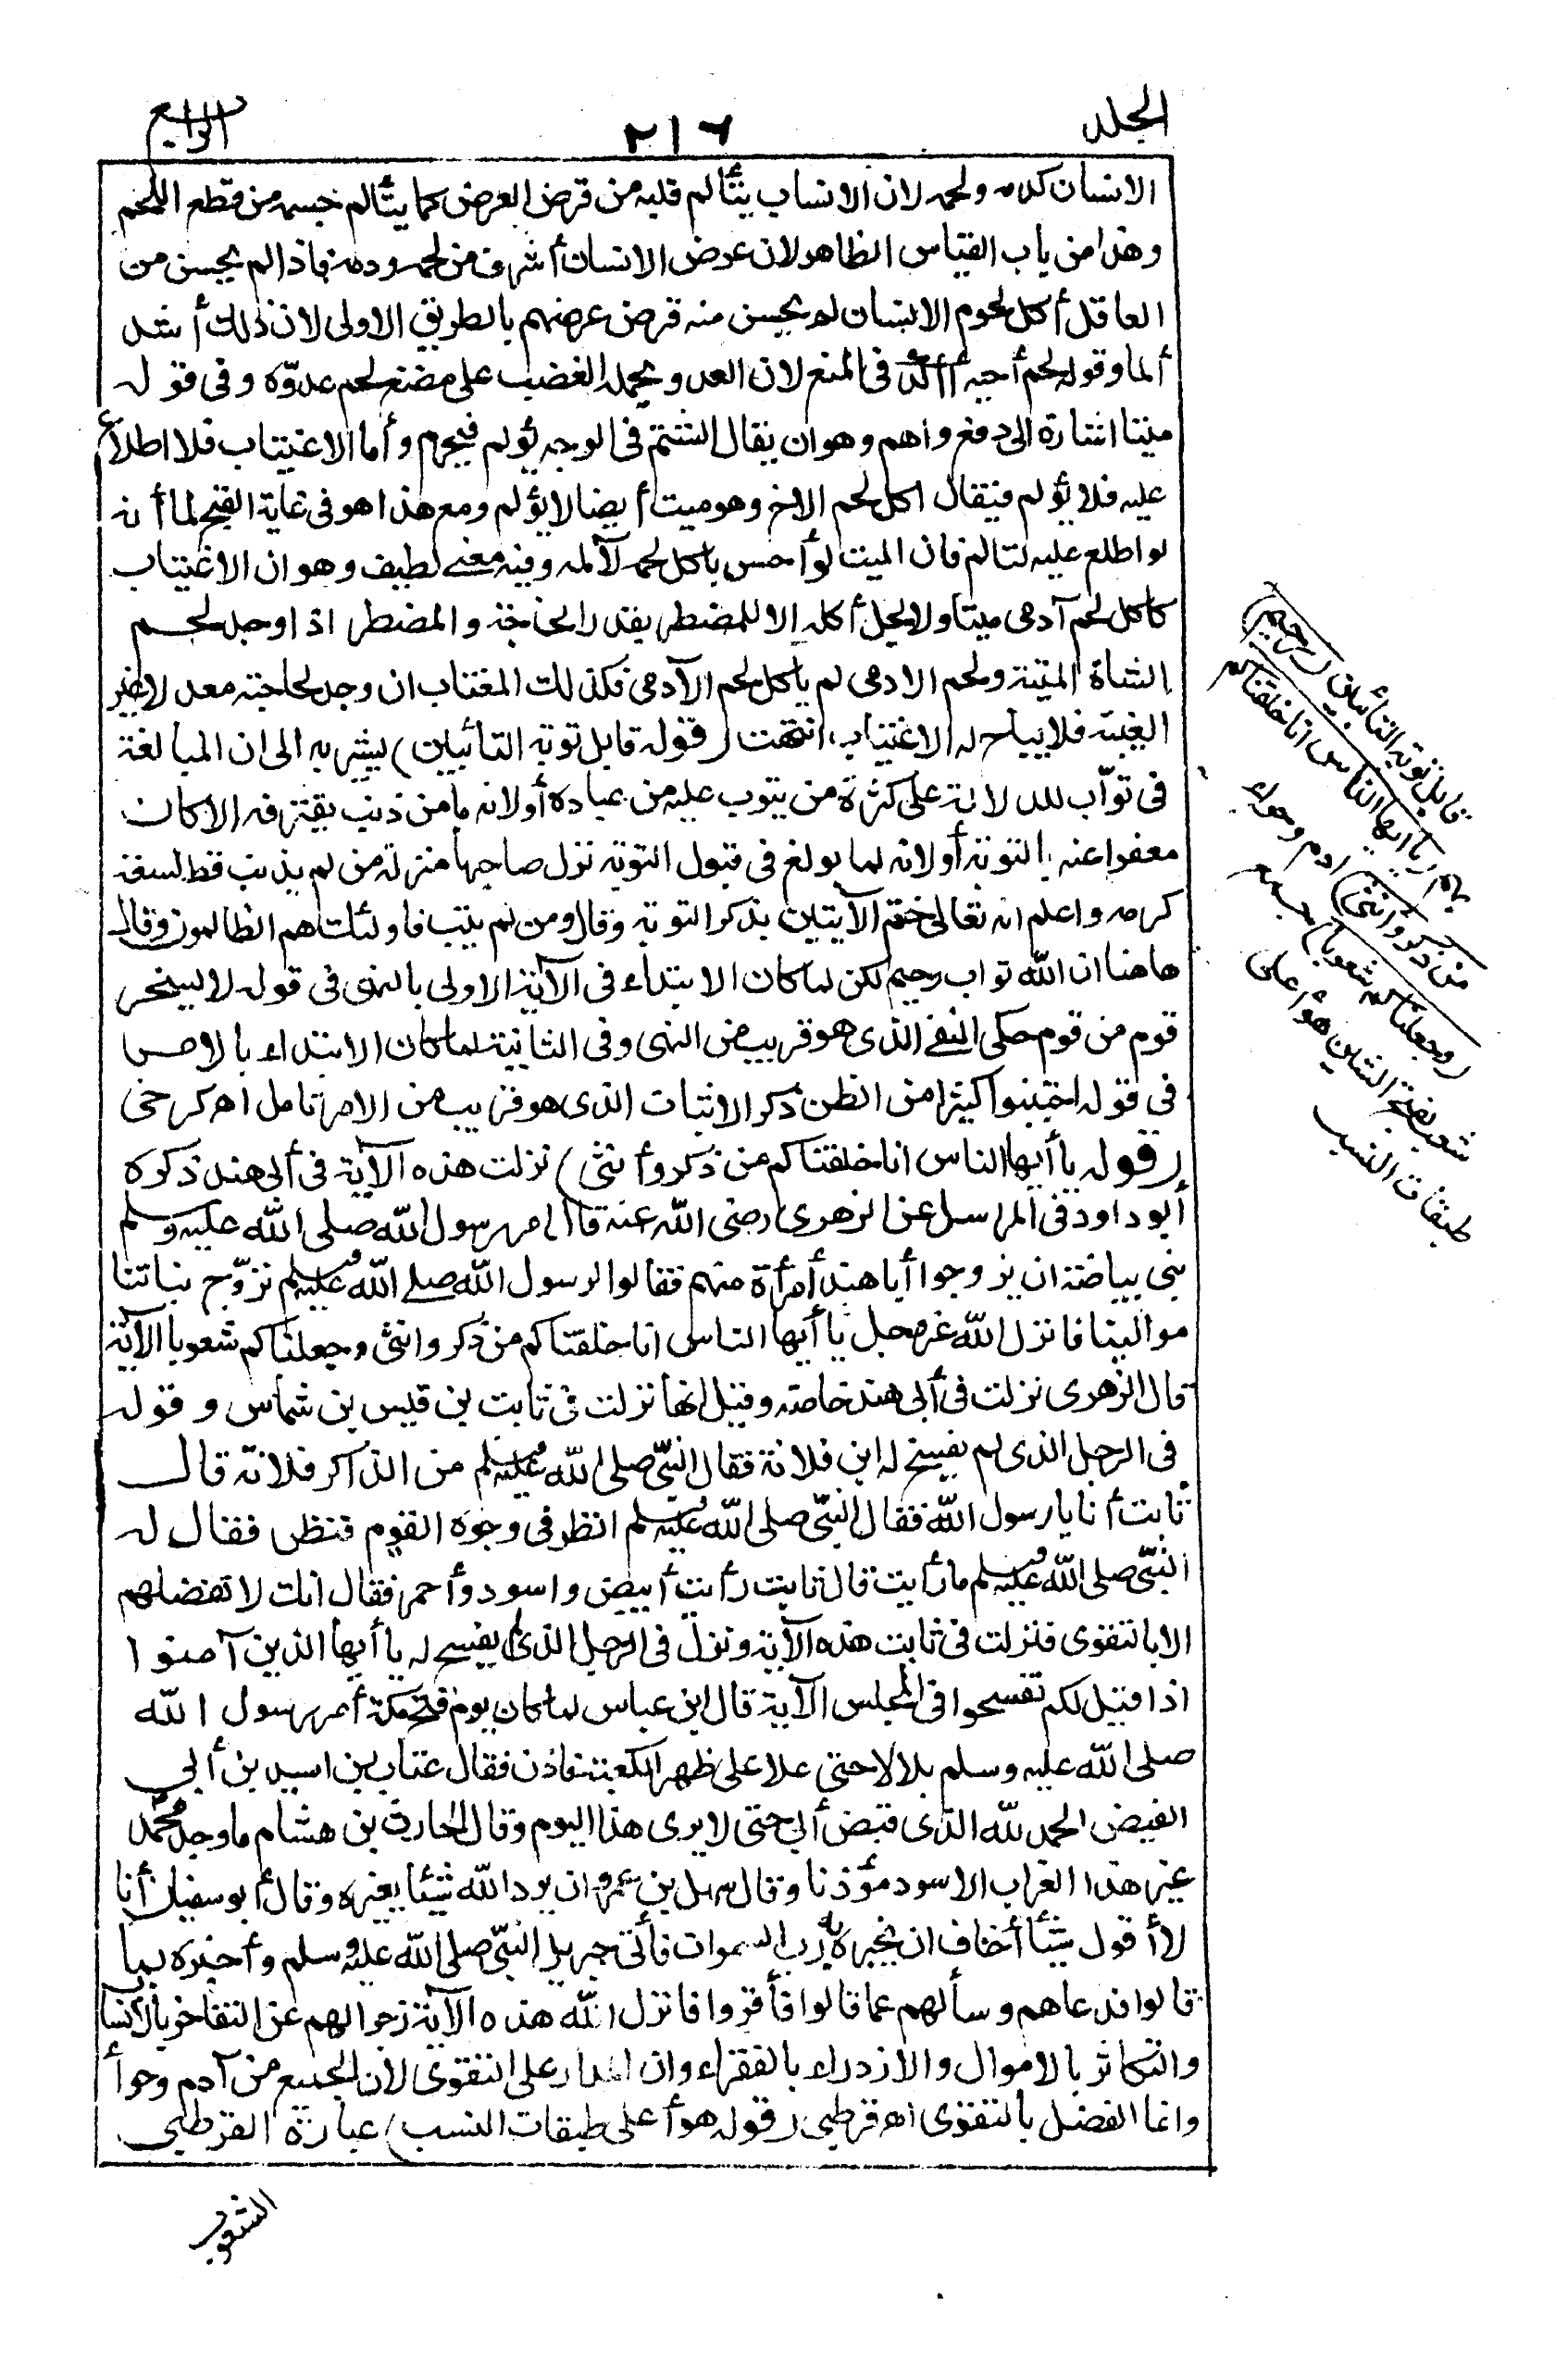 المجلد
٢١٦
الرابع
الانسان كدمه ولحمه لان الانسان يتألم قلبه من قرض العرض كما يتألم جسمه من قطع اللحم
وهذا من باب القياس الظاهر لان عرض الانسان أشرف من لحمه ودمه فاذا لم يحسن من
العاقل أكل لحوم الانسان لم يحسن منه قرض عرضهم بالطريق الاولى لان ذلك أشد
ألما وقوله لحم أخيه أآكد فى المنع لان العدو يحمله الغضب على مضغ لحم عدوّه وفى قوله
ميتا اشارة الى دفع واهم وهو ان يقال الشتم فى الوجه يؤلم فيحرم وأما الاغتياب فلا اطلاع
عليه فلا يؤلم فيقال اكل لحم الاخ وهو ميت أيضا لا يؤلم ومع هذا هو فى غاية القبح لما أنه
لو اطلع عليه لتالم فان الميت لو أحس باكل لحمه لآلمه وفيه معنى لطيف وهو ان الاغتياب
كاكل لحم آدمى ميتا ولا يحل أكله الا للمضطر بقدر الحاجة والمضطر اذا وجد لحم
الشاة الميتة ولحم الادمى لم يأكل لحم الآدمى فكذلك المغتاب ان وجد لحاجته معدلا غير
الغيبة فلا يباح له الاغتياب انتهت (قوله قابل توبة التائبين) يشير به الى ان المبالغة
فى توّاب للدلالة على كثرة من يتوب عليه من عباده أو لانه ما من ذنب يقترفه الا كان
معفوا عنه بالتوبة أو لانه لما بولغ فى قبول التوبة نزل صاحبها منزلة من لم يذنب قط لسعة
كرمه واعلم انه تعالى ختم الآيتين بذكر التوبة وقال ومن لم يتب فاولئك هم الظالمون وقال
هاهنا ان الله تواب رحيم لكن لما كان الابتداء فى الآية الاولى بالنهى فى قوله لا يسخر
قوم من قوم حكى النفى الذى هو قريب من النهى وفى الثانية لما كان الابتداء بالامر
فى قوله اجتنبوا كثيرا من الظن ذكر الاثبات الذى هو قريب من الامر تامل اهـ كرخى
(قوله يا أيها الناس انا خلقناكم من ذكر وأنثى) نزلت هذه الآية فى أبى هند ذكره
أبو داود فى المراسل عن الزهرى رضى الله عنه قال امر رسول الله صلى الله عليه وسلم
بنى بياضة ان يزوجوا أبا هند أمرأة منهم فقالوا لرسول الله صلى الله عليه وسلم نزوّج بناتنا
موالينا فانزل الله عز وجل يا أيها الناس انا خلقناكم من ذكر وانثى وجعلناكم شعوبا الآية
قال الزهرى نزلت فى أبى هند خاصة وقيل انها نزلت فى ثابت بن قيس بن شماس وقوله
فى الرجل الذى لم يفسح له ابن فلانة فقال النبىّ صلى الله عليه وسلم من الذاكر فلانة قال
ثابت أنا يا رسول الله فقال النبىّ صلى الله عليه وسلم انظر فى وجوه القوم فنظر فقال له
النبىّ صلى الله عليه وسلم ما رأيت قال ثابت رأيت أبيض واسود وأحمر فقال انك لا تفضلهم
الا بالتقوى فنزلت فى ثابت هذه الآية ونزل فى الرجل الذى لم يفسح له يا أيها الذين آمنوا
اذا قيل لكم تفسحوا فى المجلس الآية قال ابن عباس لما كان يوم فتح مكة أمر رسول الله
صلى الله عليه وسلم بلالا حتى علا على ظهر الكعبة فاذن فقال عتاب بن اسيد بن أبى
الفيض الحمد لله الذى قبض أبى حتى لا يرى هذا اليوم وقال الحارث بن هشام ما وجد محمد
غير هذا الغراب الاسود مؤذنا وقال سهل بن عمرو ان يرد الله شيئا يغيره وقال أبو سفيان أنا
لا أقول شيئا أخاف ان يخبره به رب السموات فأتى جبريل النبىّ صلى الله عليه وسلم وأخبره بما
قالوا فدعاهم وسألهم عما قالوا فأقروا فانزل الله هذه الآية زجرا لهم عن التفاخر بالانسا
والتكاثر بالاموال والازدراء بالفقراء وان المدار على التقوى لان الجميع من آدم وحوأ
وانما الفضل بالتقوى اهـ قرطبى (قوله هو أعلى طبقات النسب) عبارة القرطبى
قابل توبة التائبين (رحيم)
بهم (يا ايها الناس انا خلقناكم
من ذكر وانثى) ادم وحواء
(وجعلناكم شعوبا) جمع
شعب بفتح الشين هو أعلى
طبقات النسب
الشعوب